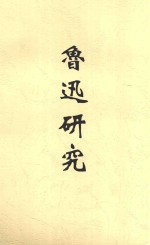 魯迅研究